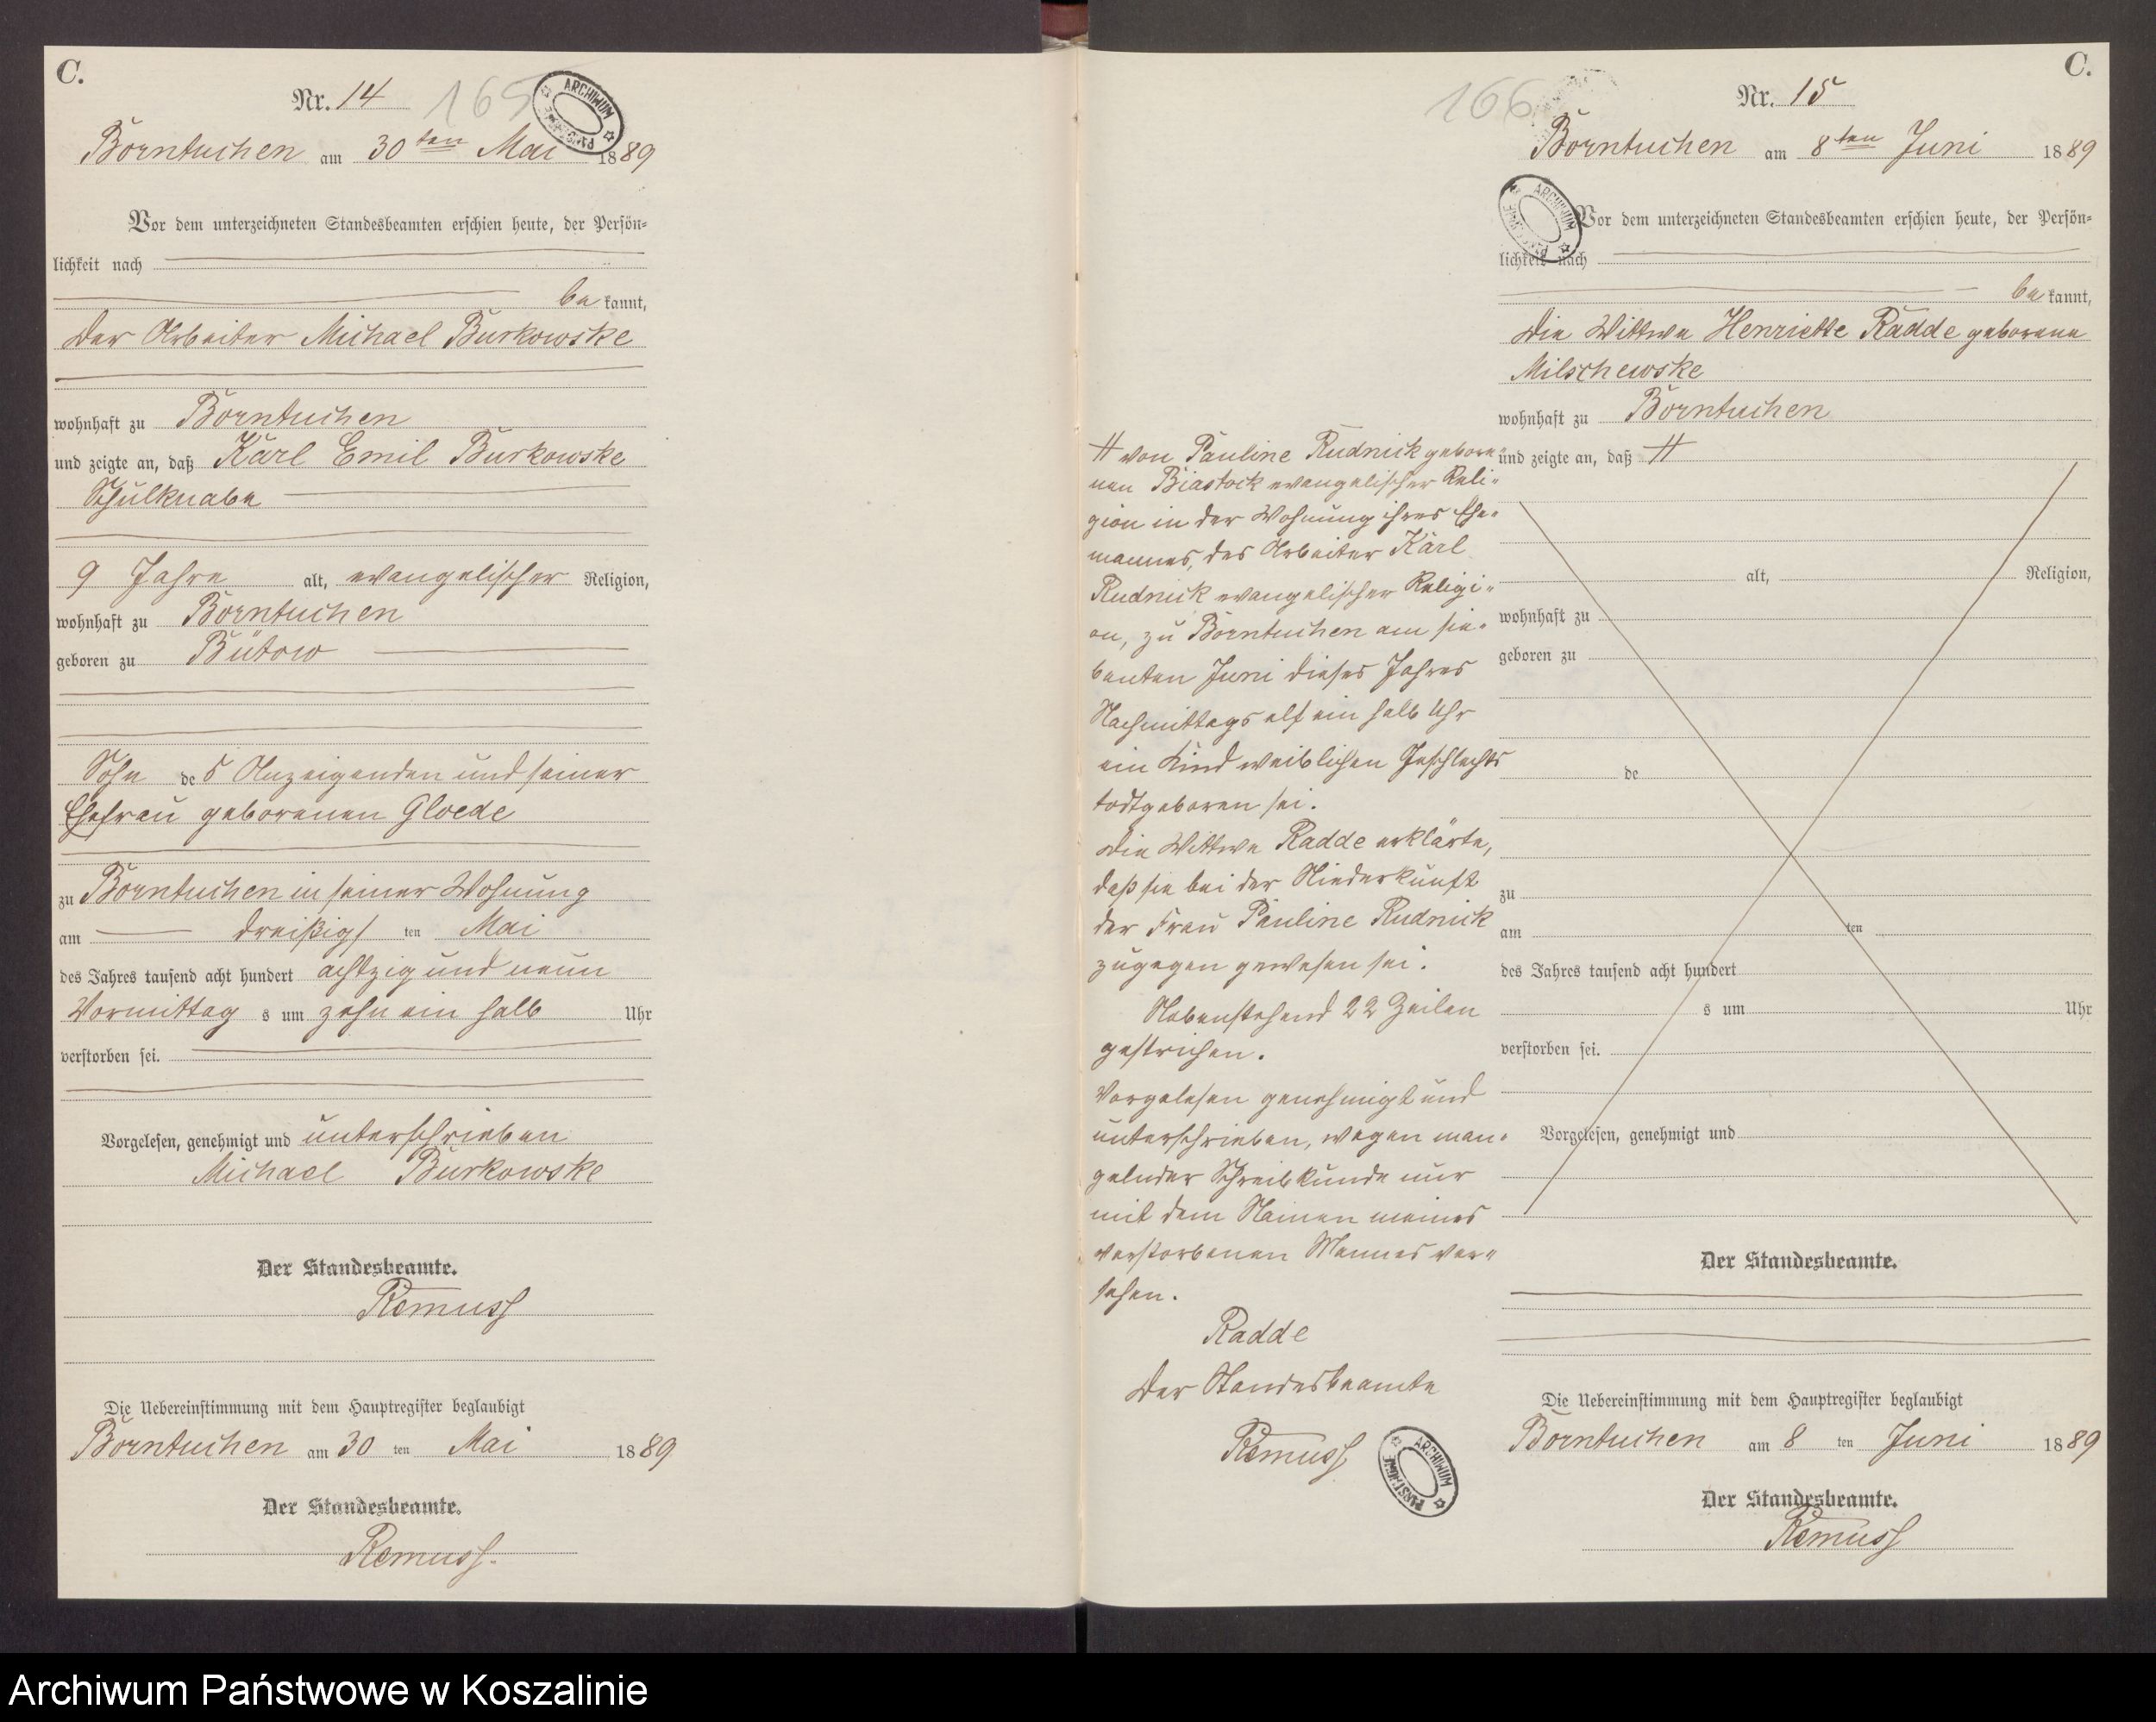 C.
Nr. 14
165
ARCHIWUM PAŃSTWOWE
Borntuchen am 30ten Mai 1889
Vor dem unterzeichneten Standesbeamten erschien heute, der Persön-
lichkeit nach
be kannt,
der Arbeiter Michael Burkowske
wohnhaft zu Borntuchen
und zeigte an, daß Karl Emil Burkowske
Schulknabe
9 Jahre alt, evangelischer Religion,
wohnhaft zu Borntuchen
geboren zu Bütow
Sohn des Anzeigenden und seiner
Ehefrau geborenen Gloede
zu Borntuchen in seiner Wohnung
am dreißigsten Mai
des Jahres tausend acht hundert achtzig und neun
Vormittag s um zehn ein halb Uhr
verstorben sei.
Vorgelesen, genehmigt und unterschrieben
Michael Burkowske
Der Standesbeamte.
Remuss
Die Uebereinstimmung mit dem Hauptregister beglaubigt
Borntuchen am 30 ten Mai 1889
Der Standesbeamte.
Remuss.
C.
Nr. 15
166
Borntuchen am 8ten Juni 1889
ARCHIWUM PAŃSTWOWE
Vor dem unterzeichneten Standesbeamten erschien heute, der Persön-
lichkeit nach
be kannt,
die Wittwe Henriette Radde geborene
Milschewske
wohnhaft zu Borntuchen
und zeigte an, daß #
# von Pauline Rudnick gebore-
nen Biastock evangelischer Reli-
gion in der Wohnung ihres Ehe-
mannes, des Arbeiter Karl
Rudnick evangelischer Religi-
on, zu Borntuchen am sie-
benten Juni dieses Jahres
Nachmittags elf ein halb Uhr
ein Kind weiblichen Geschlechts
todtgeboren sei.
Die Wittwe Radde erklärte,
daß sie bei der Niederkunft
der Frau Pauline Rudnick
zugegen gewesen sei.
Nebenstehend 22 Zeilen
gestrichen.
Vorgelesen genehmigt und
unterschrieben, wegen man-
gelnder Schreibkunde nur
mit dem Namen meines
verstorbenen Mannes ver-
sehen.
Radde
Der Standesbeamte
Remuss
ARCHIWUM PAŃSTWOWE
alt, Religion,
wohnhaft zu
geboren zu
de
zu
am ten
des Jahres tausend acht hundert
s um Uhr
verstorben sei.
Vorgelesen, genehmigt und
Der Standesbeamte.
Die Uebereinstimmung mit dem Hauptregister beglaubigt
Borntuchen am 8 ten Juni 1889
Der Standesbeamte.
Remuss
Archiwum Państwowe w Koszalinie